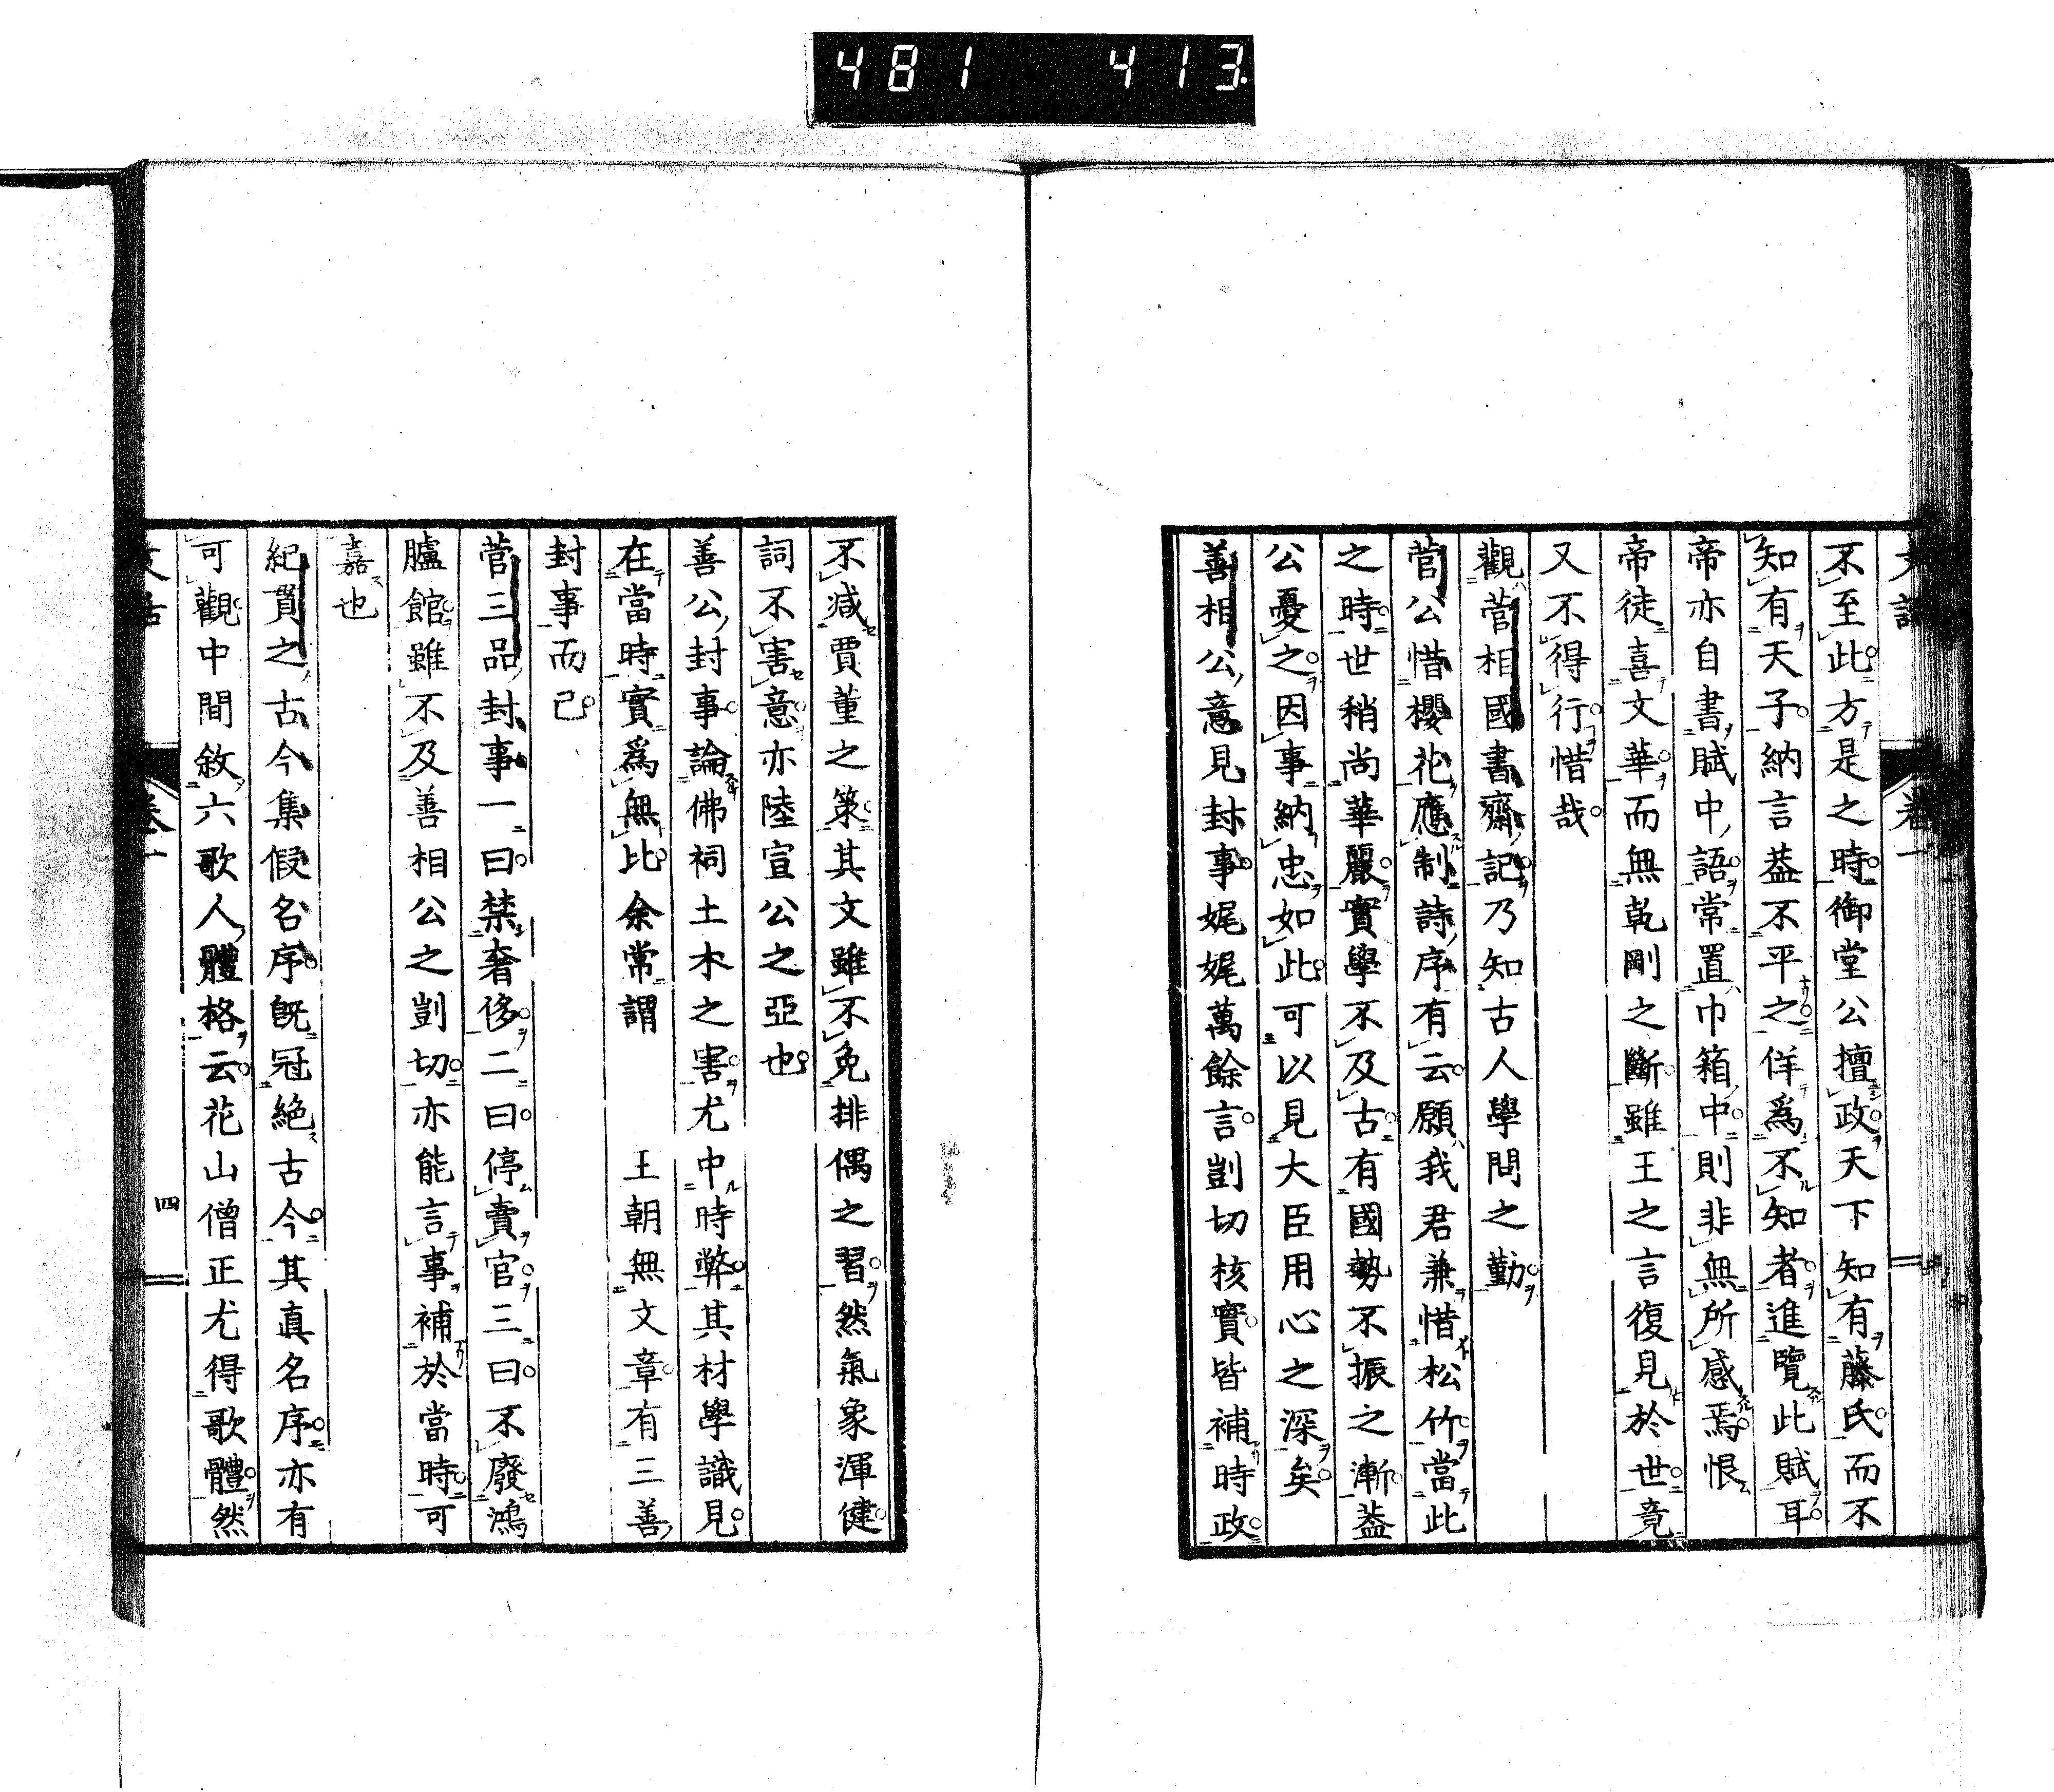 481 413
不至此方是之時御堂公擅政天下知有藤氏而不
知有天子納言葢不平之佯爲不知者進覽此賦耳
帝亦自書賦中語常置巾箱中則非無所感焉恨
帝徒喜文華而無乾剛之斷雖王之言復見於世竟
又不得行惜哉
觀菅相國書齋記乃知古人學問之勤
菅公惜櫻花應制詩序有云願我君兼惜松竹當此
之時世稍尚華麗實學不及古有國勢不振之漸葢
公憂之因事納忠如此可以見大臣用心之深矣
善相公意見封事娓娓萬餘言剴切核實皆補時政
不減賈董之策其文雖不免排偶之習然氣象渾健
詞不害意亦陸宣公之亞也
善公封事論佛祠土木之害尤中時弊其材學識見
在當時實爲無比余常謂 王朝無文章有三善
封事而已
菅三品封事一曰禁奢侈二曰停賣官三曰不廢鴻
臚館雖不及善相公之剴切亦能言事補於當時可
嘉也
紀貫之古今集假名序既冠絶古今其真名序亦有
可觀中間敘六歌人體格云花山僧正尤得歌體然
四